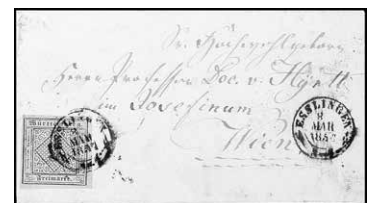 Sr. Hochwohlgeborn
Herrn Professor Doc. v. Hyrtl
im Josefinum
Wien
ESSLINGEN
8
MAR
Freimarke